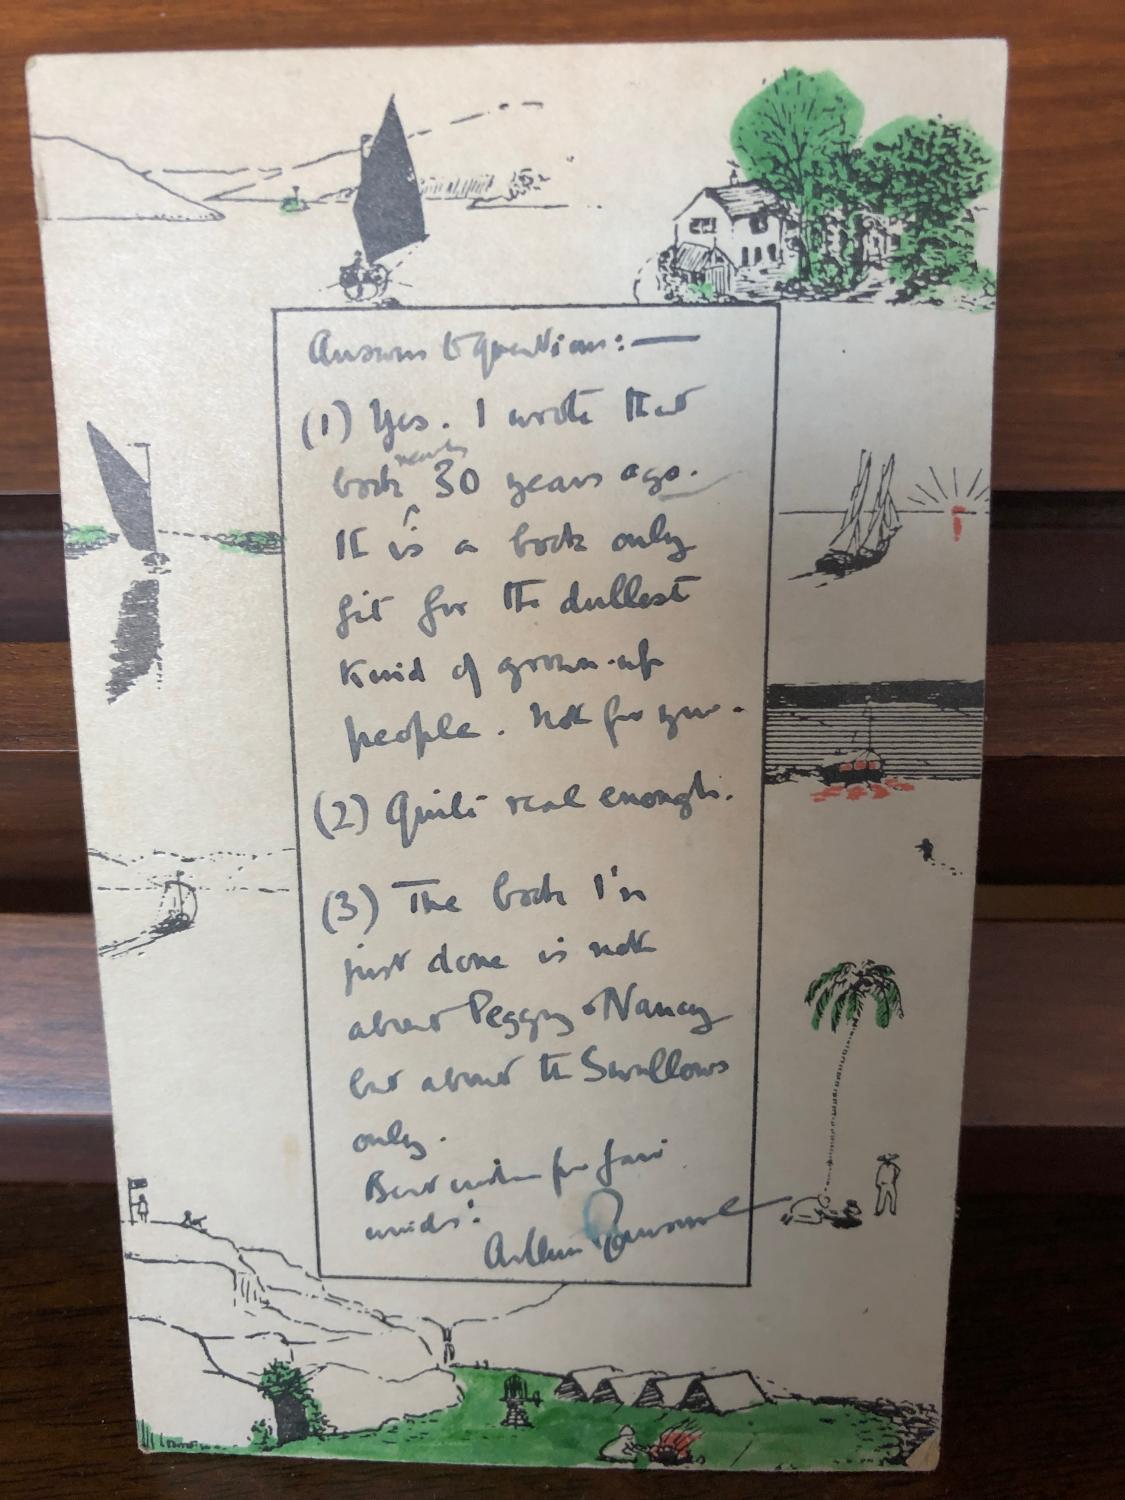 Answers to Questions:—
(1) Yes. I wrote that
book nearly 30 years ago.
It is a book only
fit for the dullest
kind of grown-up
people. Not for you.
(2) Quite real enough.
(3) The book I'n
just done is not
about Peggy & Nancy
but about the Swallows
only.
Best wishes for fair
winds!
Arthur Ransome